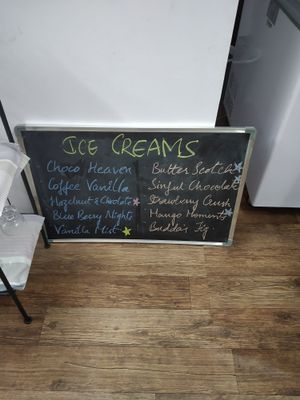 ICE CREAMS
Choco Heaven
Coffee Vanilla
Hazelnut & Choclate
Blue Berry Nights
Vanilla Mist
Butter Scotch
Sinful Chocolate
Strawberry Crush
Mango Moments
Budda's Fig